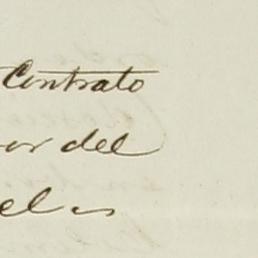 Contrato
or del
el